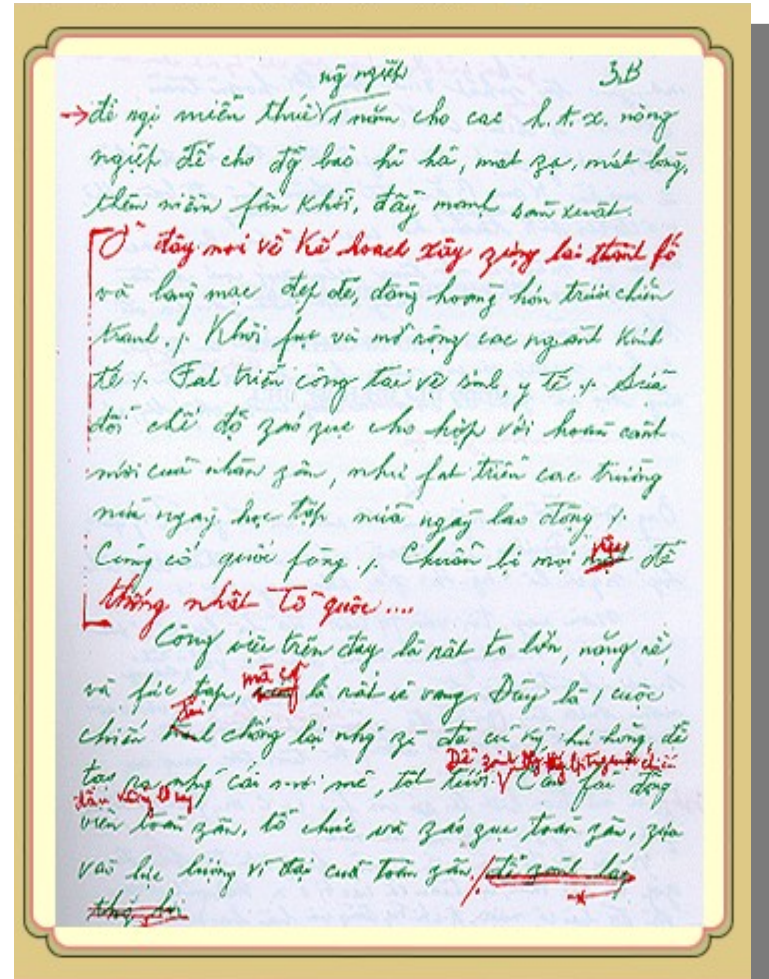 ng̃ ngiệp 3.B
→ đề ngị miễn thuế 1 năm cho các h.t.x. nông
ngiệp để cho đg̃ bào hỉ hả, mát zạ, mát lòng,
thêm niềm fấn khởi, đẩy mạnh sản xuất.
Ở đây nói về kế hoạch xây zựng lại thành fố
và làng mạc đẹp đẽ, đàng hoàng hơn trước chiến
tranh. /. Khôi fục và mở rộng các ngành kinh
tế /. Fát triển công tác vệ sinh, y tế /. Sửa
đổi chế độ záo zục cho hợp với hoàn cảnh
mới của nhân zân, như fát triển các trường
nửa ngày học tập nửa ngày lao động /.
Củng cố quốc fòng. /. Chuẩn bị mọi việc để
thống nhất Tổ quốc....
Công việc trên đây là rất to lớn, nặng nề,
và fức tạp, mà cũ là rất vẻ vang. Đây là 1 cuộc
chiến đấu chống lại nhg̃ zì đã cũ kỹ hư hỏng, để
tạo ra nhg̃ cái mới mẻ, tốt tươi. Để zành thắng lợi trong cuộc chiến
đấu này Cần fải động
viên toàn zân, tổ chức và záo zục toàn zân, zựa
vào lực lượng vĩ đại của toàn zân. để zành lấy
thắng lợi